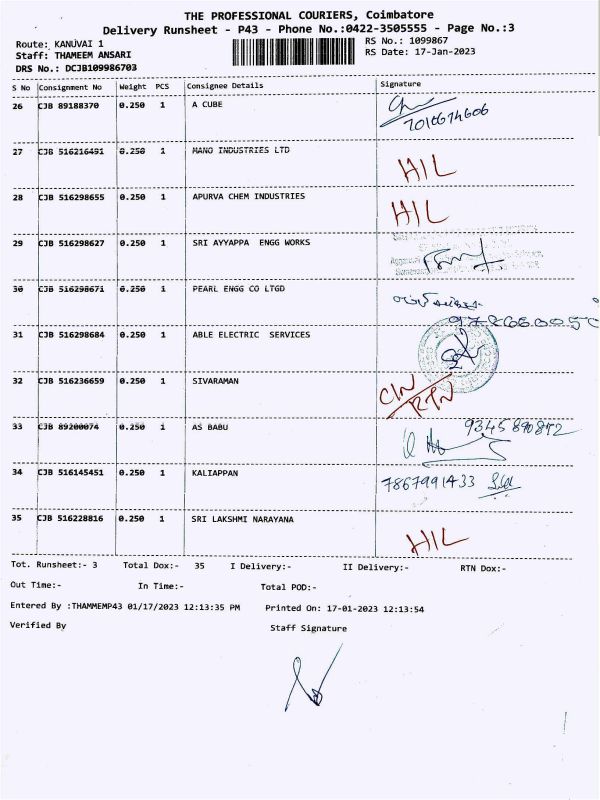 THE PROFESSIONAL COURIERS, Coimbatore
Delivery Runsheet - P43 - Phone No.:0422-3505555 - Page No.:3
Route: KANUVAI 1
RS No.: 1099867
Staff: THAMEEM ANSARI
RS Date: 17-Jan-2023
DRS No.: DCJB109986703
S No Consignment No Weight PCS Consignee Details Signature
26 CJB 89188370 0.250 1 A CUBE
27 CJB 516216451 0.250 1 MANO INDUSTRIES LTD
HIL
28 CJB 516298655 0.250 1 APURVA CHEM INDUSTRIES
HIL
29 CJB 516298627 0.250 1 SRI AYYAPPA ENGG WORKS
30 CJB 516298671 0.250 1 PEARL ENGG CO LTGD
31 CJB 516298684 0.250 1 ABLE ELECTRIC SERVICES
32 CJB 516236659 0.250 1 SIVARAMAN
CIN
RTN
33 CJB 89200074 0.250 1 AS BABU
9345890872
34 CJB 516145451 0.250 1 KALIAPPAN
7867991433
35 CJB 516228816 0.250 1 SRI LAKSHMI NARAYANA
HIL
Tot. Runsheet:- 3 Total Dox:- 35 I Delivery:- II Delivery:- RTN Dox:-
Out Time:- In Time:- Total POD:-
Entered By :THAMMEMP43 01/17/2023 12:13:35 PM Printed On: 17-01-2023 12:13:54
Verified By Staff Signature